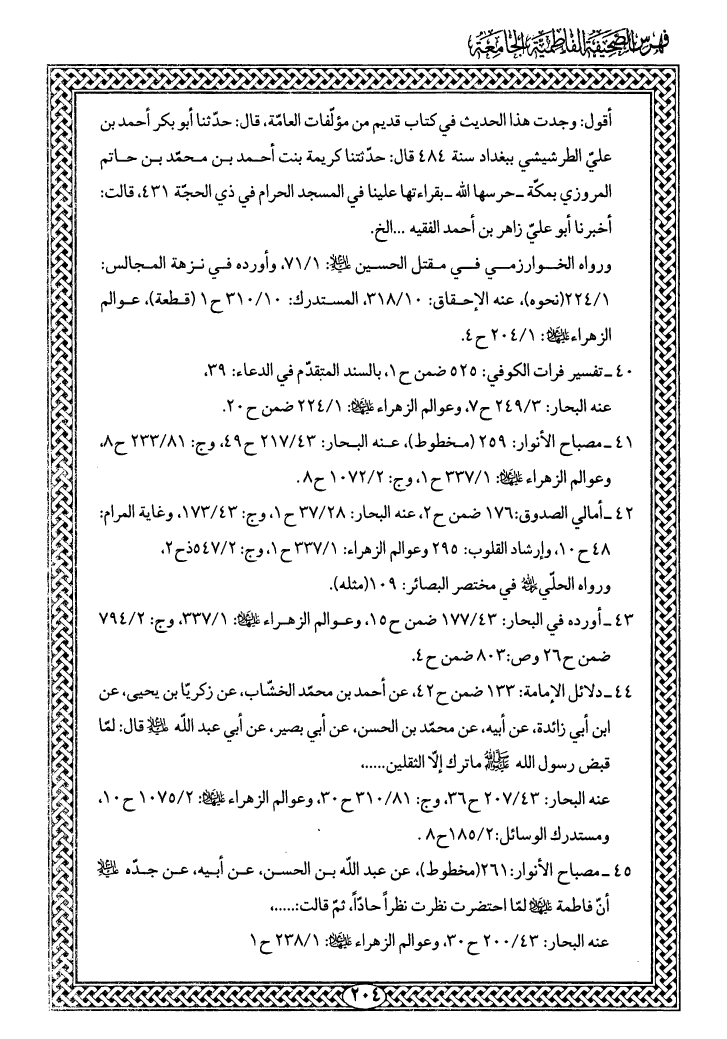 فهرس الصحيفة الفاطمية الجامعة
أقول: وجدت هذا الحديث في كتاب قديم من مؤلّفات العامّة، قال: حدّثنا أبو بكر أحمد بن
عليّ الطرشيشي ببغداد سنة ٤٨٤ قال: حدّثتنا كريمة بنت أحمد بن محمّد بن حاتم
المروزي بمكّة ـ حرسها الله ـ بقراءتها علينا في المسجد الحرام في ذي الحجّة ٤٣١، قالت:
أخبرنا أبو عليّ زاهر بن أحمد الفقيه ...الخ.
ورواه الخوارزمي في مقتل الحسين عليه السلام: ٧١/١، وأورده في نزهة المجالس:
٢٢٤/١(نحوه)، عنه الإحقاق: ٣١٨/١٠، المستدرك: ٣١٠/١٠ ح١ (قطعة)، عوالم
الزهراء عليها السلام: ٢٠٤/١ ح٤.
٤٠ ـ تفسير فرات الكوفي: ٥٢٥ ضمن ح١، بالسند المتقدّم في الدعاء: ٣٩،
عنه البحار: ٢٤٩/٣ ح٧، وعوالم الزهراء عليها السلام: ٢٢٤/١ ضمن ح٢٠.
٤١ ـ مصباح الأنوار: ٢٥٩ (مخطوط)، عنه البحار: ٢١٧/٤٣ ح٤٩، وج: ٢٣٣/٨١ ح٨،
وعوالم الزهراء عليها السلام: ٣٣٧/١ ح١، وج: ١٠٧٢/٢ ح٨.
٤٢ ـ أمالي الصدوق: ١٧٦ ضمن ح٢، عنه البحار: ٣٧/٢٨ ح١، وج: ١٧٣/٤٣، وغاية المرام:
٤٨ ح١٠، وإرشاد القلوب: ٢٩٥ وعوالم الزهراء: ٣٣٧/١ ح١، وج: ٥٤٧/٢ذح٢،
ورواه الحلّي رحمه الله في مختصر البصائر: ١٠٩(مثله).
٤٣ ـ أورده في البحار: ١٧٧/٤٣ ضمن ح١٥، وعوالم الزهراء عليها السلام: ٣٣٧/١، وج: ٧٩٤/٢
ضمن ح٢٦ وص: ٨٠٣ ضمن ح٤.
٤٤ ـ دلائل الإمامة: ١٣٣ ضمن ح٤٢، عن أحمد بن محمّد الخشّاب، عن زكريّا بن يحيى، عن
ابن أبي زائدة، عن أبيه، عن محمّد بن الحسن، عن أبي بصير، عن أبي عبد اللّه عليه السلام قال: لمّا
قبض رسول الله صلى الله عليه وآله ماترك إلّا الثقلين.....،
عنه البحار: ٢٠٧/٤٣ ح٣٦، وج: ٣١٠/٨١ ح٣٠، وعوالم الزهراء عليها السلام: ١٠٧٥/٢ ح١٠،
ومستدرك الوسائل: ١٨٥/٢ح٨.
٤٥ ـ مصباح الأنوار: ٢٦١(مخطوط)، عن عبد اللّه بن الحسن، عن أبيه، عن جدّه عليه السلام
أنّ فاطمة عليها السلام لمّا احتضرت نظرت نظراً حادّاً، ثمّ قالت:.....،
عنه البحار: ٢٠٠/٤٣ ح٣٠، وعوالم الزهراء عليها السلام: ٢٣٨/١ ح١
٢٠٤